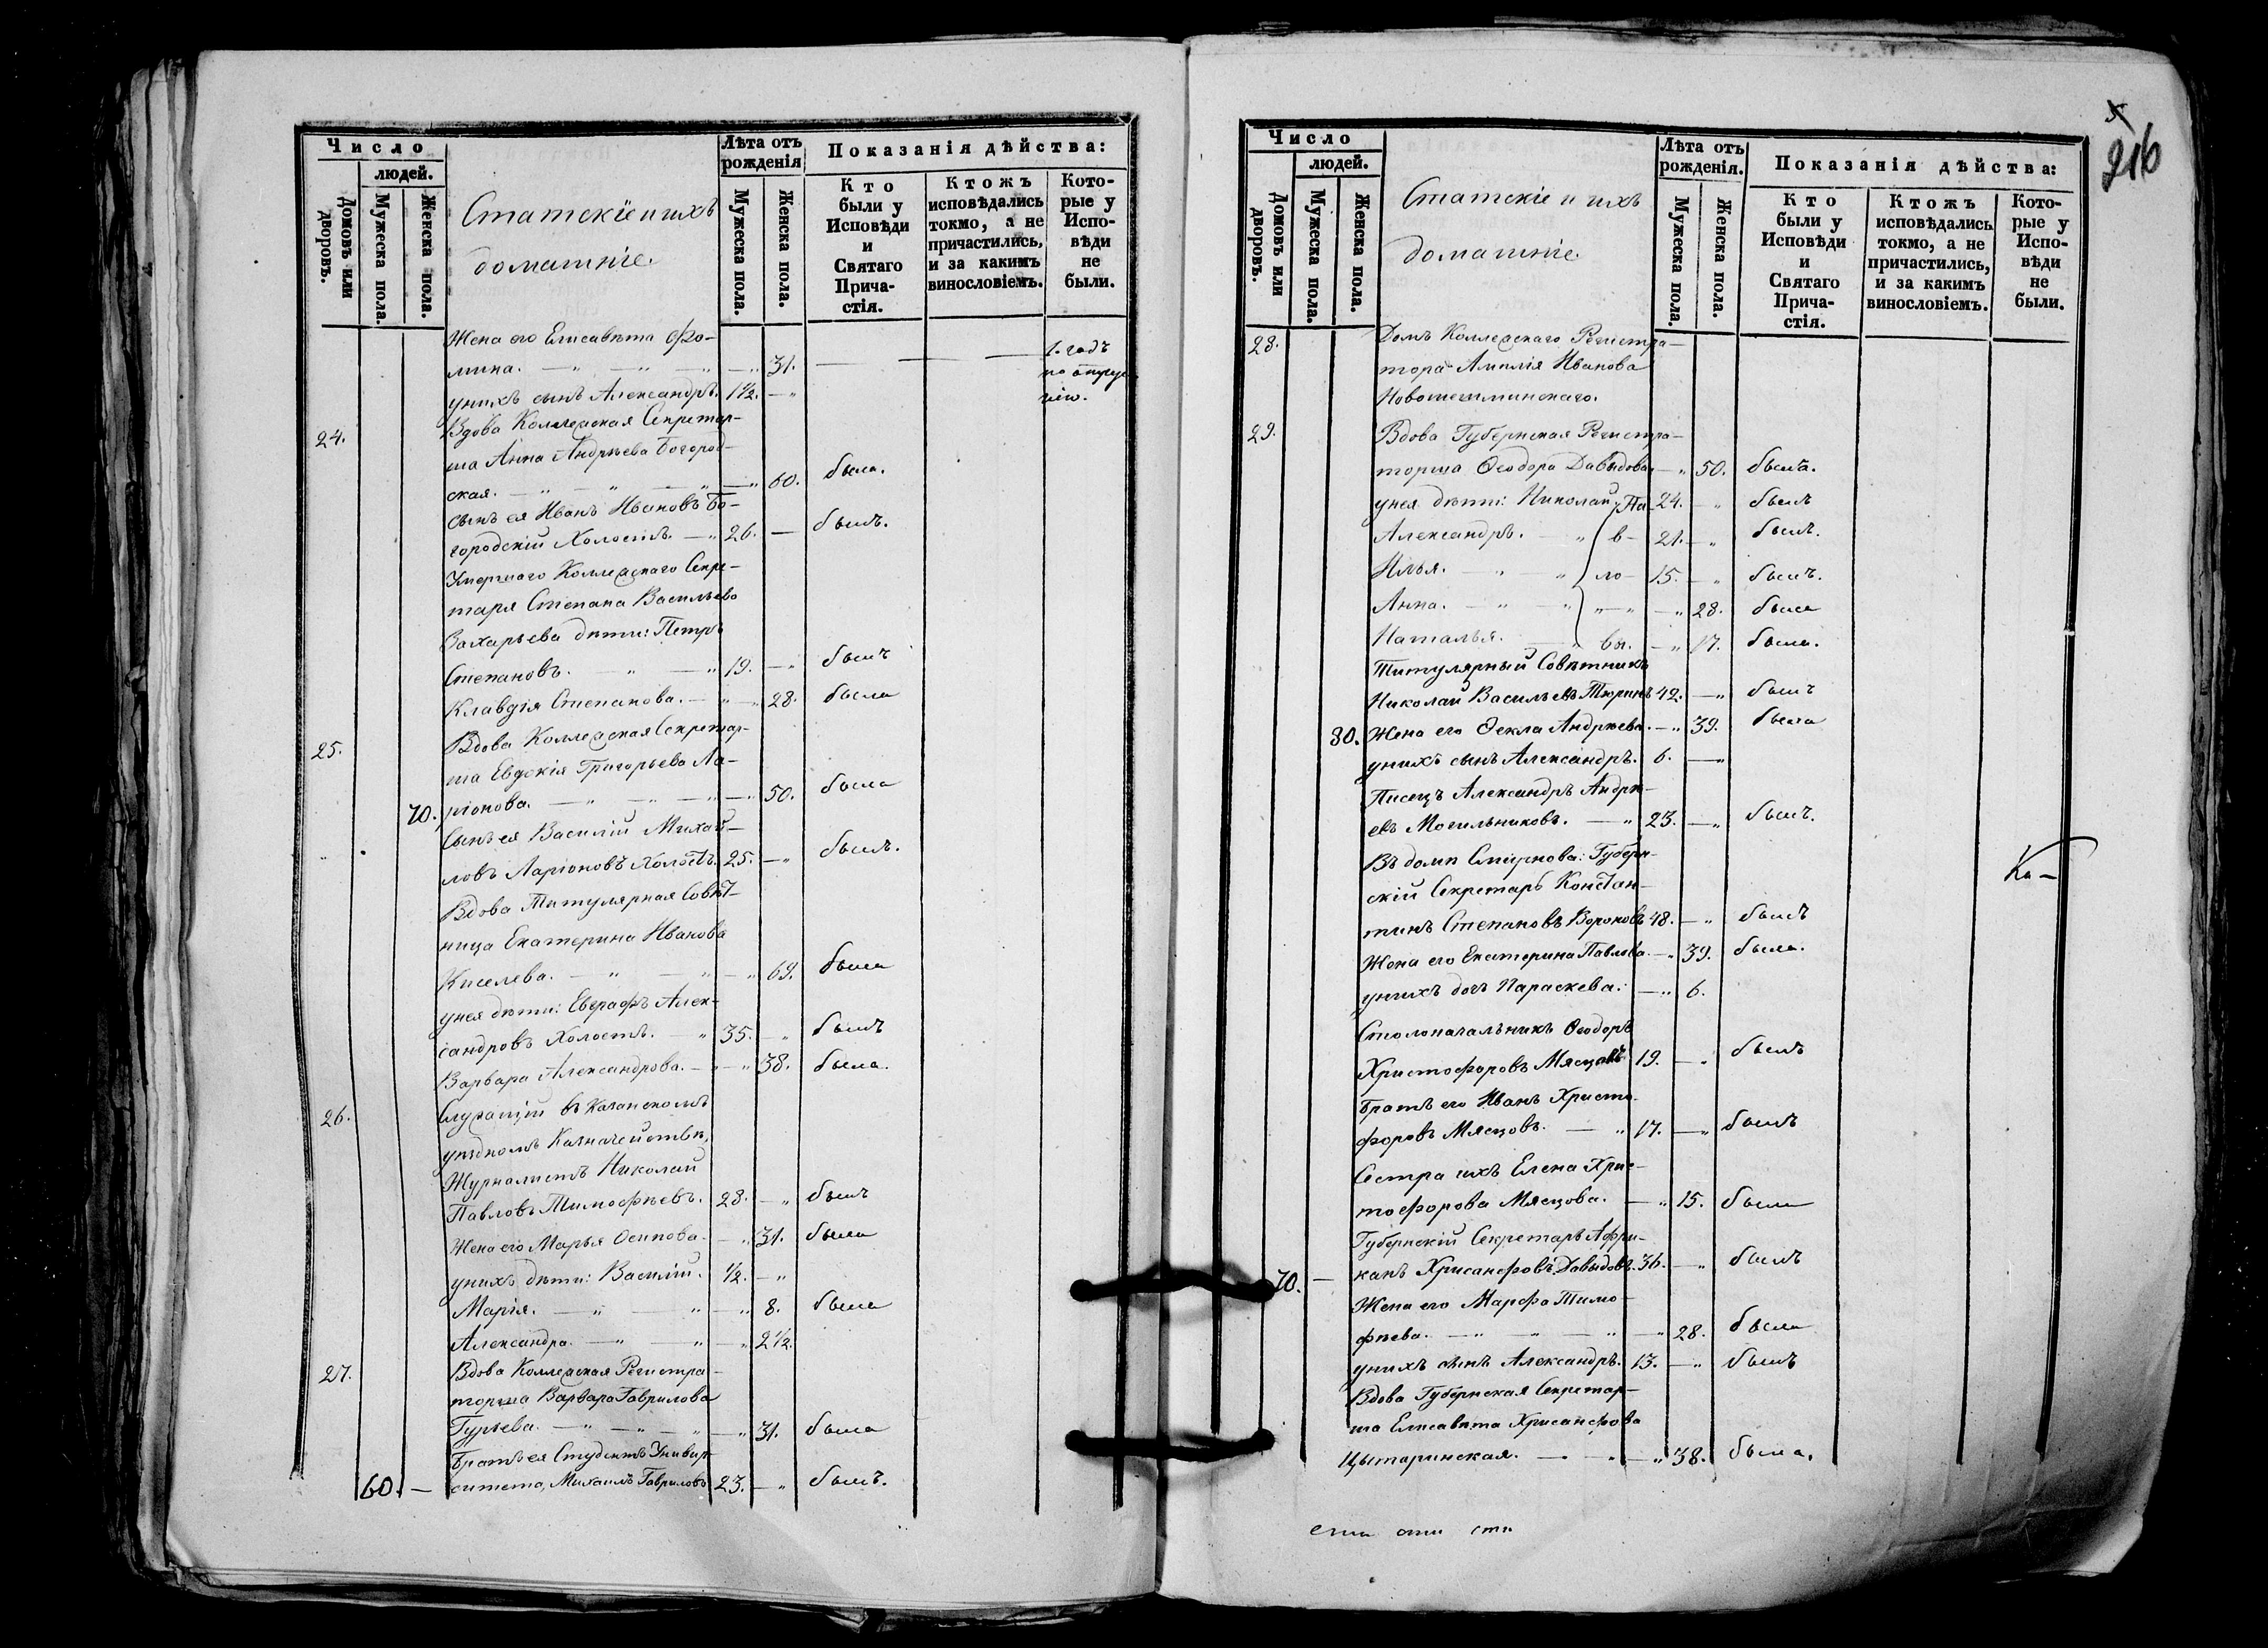 Число
людей.
Домовъ или дворовъ.
Мужеска пола.
Женска пола.
Статскіе и ихъ
домашніе.
Лѣта отъ рожденія
Мужеска пола.
Женска пола.
Показанія дѣйства:
Кто были у Исповѣди и Святаго Прича-стія.
Ктожъ исповѣдались токмо, а не причастились, и за какимъ винословіемъ.
Кото-рые у Испо-вѣди не были.
Жена его Елисавета Фо-
мина. — „ — „ — „ — „ 31. — — — 1. годъ
по опущенію.
у нихъ сынъ Александръ. 1 1/2. — „
24. Вдова Коллежская Секретар-
ша Анна Андрѣева Богород-
ская. — „ — „ — „ — „ 60. была.
Сынъ ея Иванъ Ивановъ Бо-
городскій Холостъ. — „ 26. — былъ.
Умершаго Коллежскаго Секре-
таря Степана Васильева
Захарьева дѣти: Петръ
Степановъ. — „ — „ 19. — „ былъ
Клавдія Степанова. — „ — „ 28. была
25. Вдова Коллежская Секретар-
ша Евдокія Григорьева Ла-
70. ріонова. — „ — „ — „ — „ 50. была
Сынъ ея Василій Михай-
ловъ Ларіоновъ Холостъ. 25. — „ былъ.
Вдова Титулярная Совѣт-
ница Екатерина Иванова
Киселева. — „ — „ — „ 69. была
у нея дѣти: Евграфъ Алек-
сандровъ Холостъ. — „ 35. — „ былъ
Варвара Александрова. — „ — „ 38. была.
26. Служащій въ Казанскомъ
уѣздномъ Казначействѣ,
Журналистъ Николай
Павловъ Тимофѣевъ. 28. — „ былъ
Жена его Марья Осипова — „ 31. была
у нихъ дѣти: Василій. 1/2. — „
Марія. — „ — „ — „ 8. была
Александра. — „ — „ — „ 2 1/2.
27. Вдова Коллежская Регистра-
торша Варвара Гаврилова
Гурьева. — „ — „ — „ — „ 31. была
Братъ ея Студентъ Универ-
60. — ситета, Михаилъ Гавриловъ 23. — „ былъ.
216
Число
людей.
Домовъ или дворовъ.
Мужеска пола.
Женска пола.
Статскіе и ихъ
домашніе.
Лѣта отъ рожденія.
Мужеска пола.
Женска пола.
Показанія дѣйства:
Кто были у Исповѣди и Святаго Прича-стія.
Ктожъ исповѣдались токмо, а не причастились, и за какимъ винословіемъ.
Кото-рые у Испо-вѣди не были.
28. Домъ Коллежскаго Регистра-
тора Иванова
Новошешминскаго.
29. Вдова Губернская Регистра-
торша Ѳеодора Давыдова. — „ 50. была.
у нея дѣти: Николай Па- 24. — „ былъ
Александръ. — „ в- 21. — „ былъ.
Илья. — „ — „ ло- 15. — „ былъ.
Анна. — „ — „ „ — „ — „ 28. была
Наталья. — „ вы. — „ 17. была.
Титулярный Совѣтникъ
Николай Васильевъ Тюринъ 42. — „ былъ
80. Жена его Ѳекла Андрѣева. — „ 39. была
у нихъ сынъ Александръ. 6. — „
Писецъ Александръ Андрѣ-
евъ Могильниковъ. — „ 23. — „ былъ.
Въ домѣ Смирнова: Губерн-
скій Секретарь Констан-
тинъ Степановъ Вороновъ 48. — „ былъ
Жена его Екатерина Павлова. — „ 39. была.
у нихъ дочь Параскева. — „ 6.
Столоначальникъ Ѳеодоръ
Христофоровъ Мясцовъ 19. — „ былъ
Братъ его Иванъ Христо-
форовъ Мясцовъ. — „ 17. — „ былъ
Сестра ихъ Елена Хрис-
тофорова Мясцова. — „ 15. была
Губернскій Секретарь Афри-
70. — канъ Хрисанфовъ Давыдовъ. 36. — „ былъ
Жена его Марфа Тимо-
фѣева. — „ — „ — „ — „ 28. была
у нихъ сынъ Александръ. 13. — „ былъ
Вдова Губернская Секретар-
ша Елисавета Хрисанфова
Цытаринская. — „ — „ 38. была.
Ка-